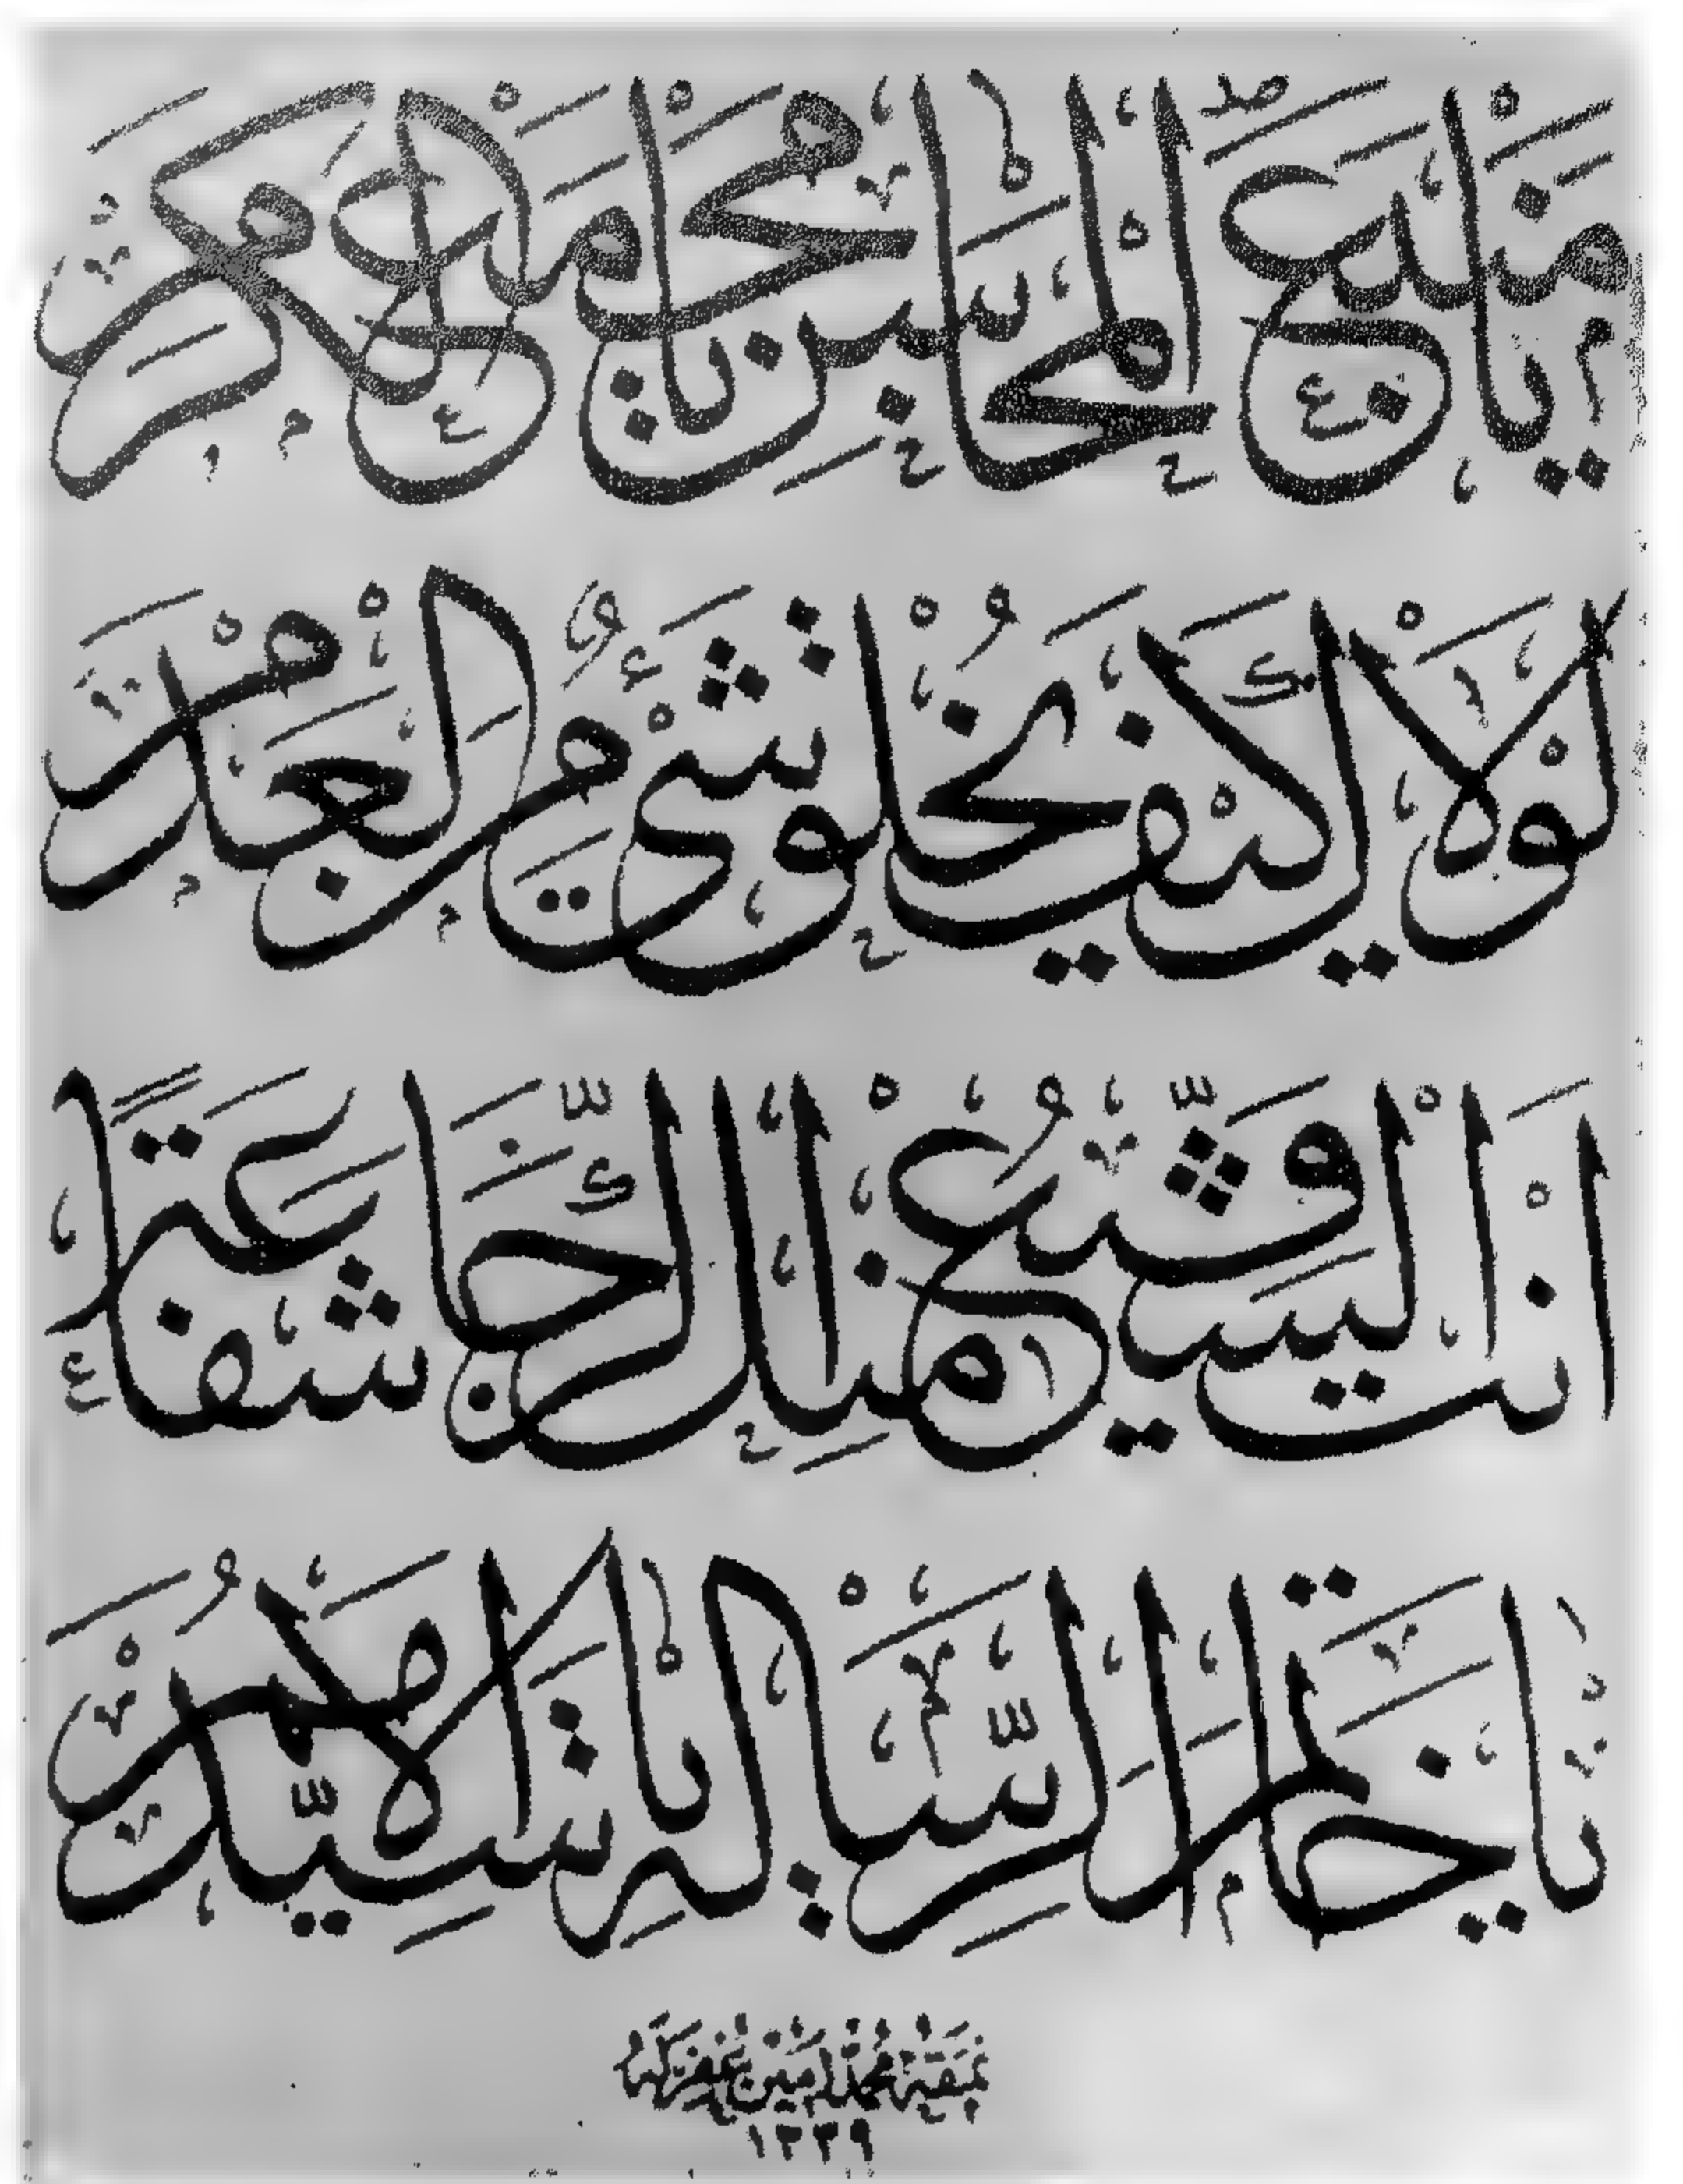 يا منبع المحاسن يا مجمع الكرم
لولاك كيف يخلق شيء من العدم
انت الرجا شفاعة
يا خاتم الرسالة يا سيد الامم
نمقه محمد امين غفر له
١٣٣٩